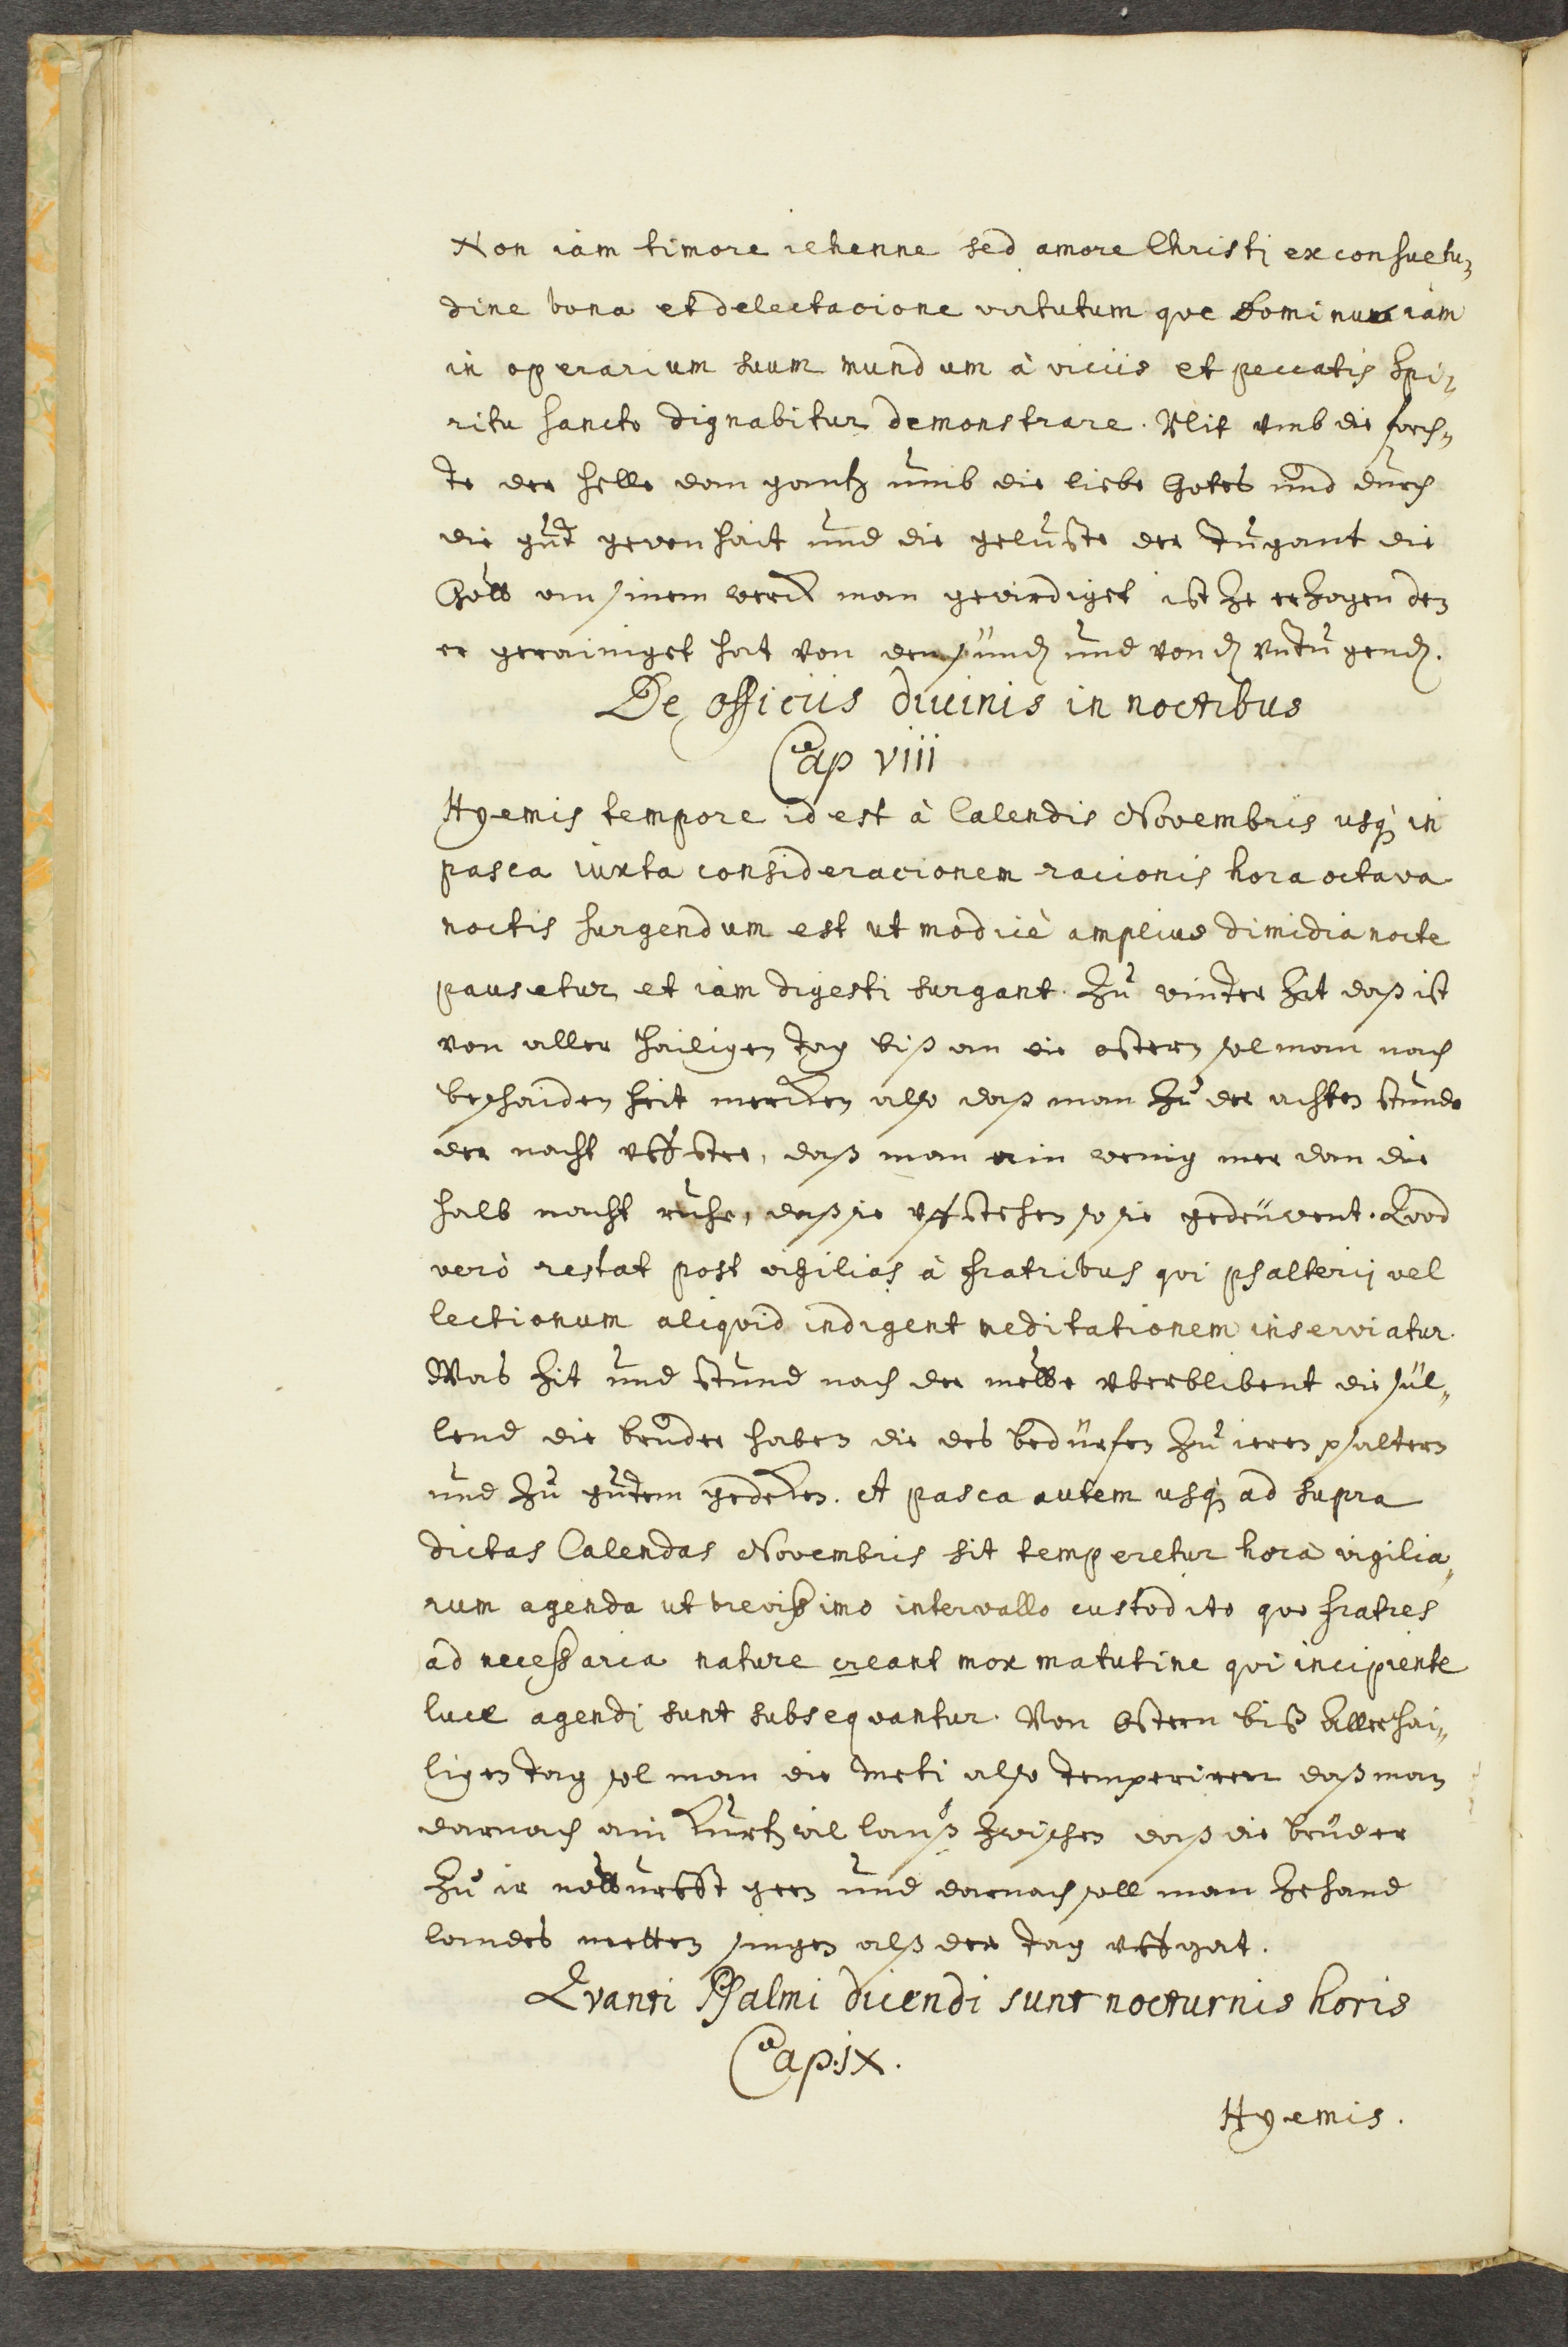 Non iam timore iehenne sed amore Christi ex consuetu¬
dine bona et delectacione virtutum que Dominus iam
in operarium suum mundum à viciis et peccatis Spi¬
ritu sancto dignabitur demonstrare. Nit umb die forch¬
te der helle dan gantz umb die liebe Gotes und durch
die gut gewonhait und die geluste der tugant die
Gott an sinem werck man gewirdiget ist ze erzogen den
er gerainiget hat von den sünd und von d untugend.
De officiis divinis in noctibus
Cap viii
Hyemis tempore id est à Calendis Novembris usq in
pasca iuxta consideracionem racionis hora octava
noctis surgendum est ut modicè amplius dimidia nocte
pausetur et iam digesti surgant. Zu winter Zit daß ist
von aller hailigen tag biß an die ostern sol man nach
beschaiden heit mercken also daß man zu der achten stunde
der nacht uffstee, daß man ain wenig mer dan die
halb nacht ruhe, daß sie uffstehen so sie gedeuwent. Qvod
verò restat post vigilias à fratribus qvi psalterij vel
lectionum aliqvid indigent meditationem inserviatur.
Was Zit und stund nach der mette uberblibent die sül¬
lend die bruder haben die des bedürfen zu ieren psaltern
und zu gutem gedencken. A pasca autem usq ad supra
dictas Calendas Novembris sit temperetur hora vigilia¬
rum agenda ut brevissimo intervallo custodito qvo fratres
ad necessaria nature creant mox matutine qvi incipiente
luce agendi sunt subseqvantur. Von Ostern biß Aller hai¬
ligen tag sol man die meti also temperiren daß man
darnach ain kurtz wil lauß zwischen daß die bruder
zu ir notturfft geen und darnach soll man zehand
laudes metten singen alß der tag uffgat.
Qvanti Psalmi dicendi sunt nocturnis horis
Cap. ix.
Hyemis.